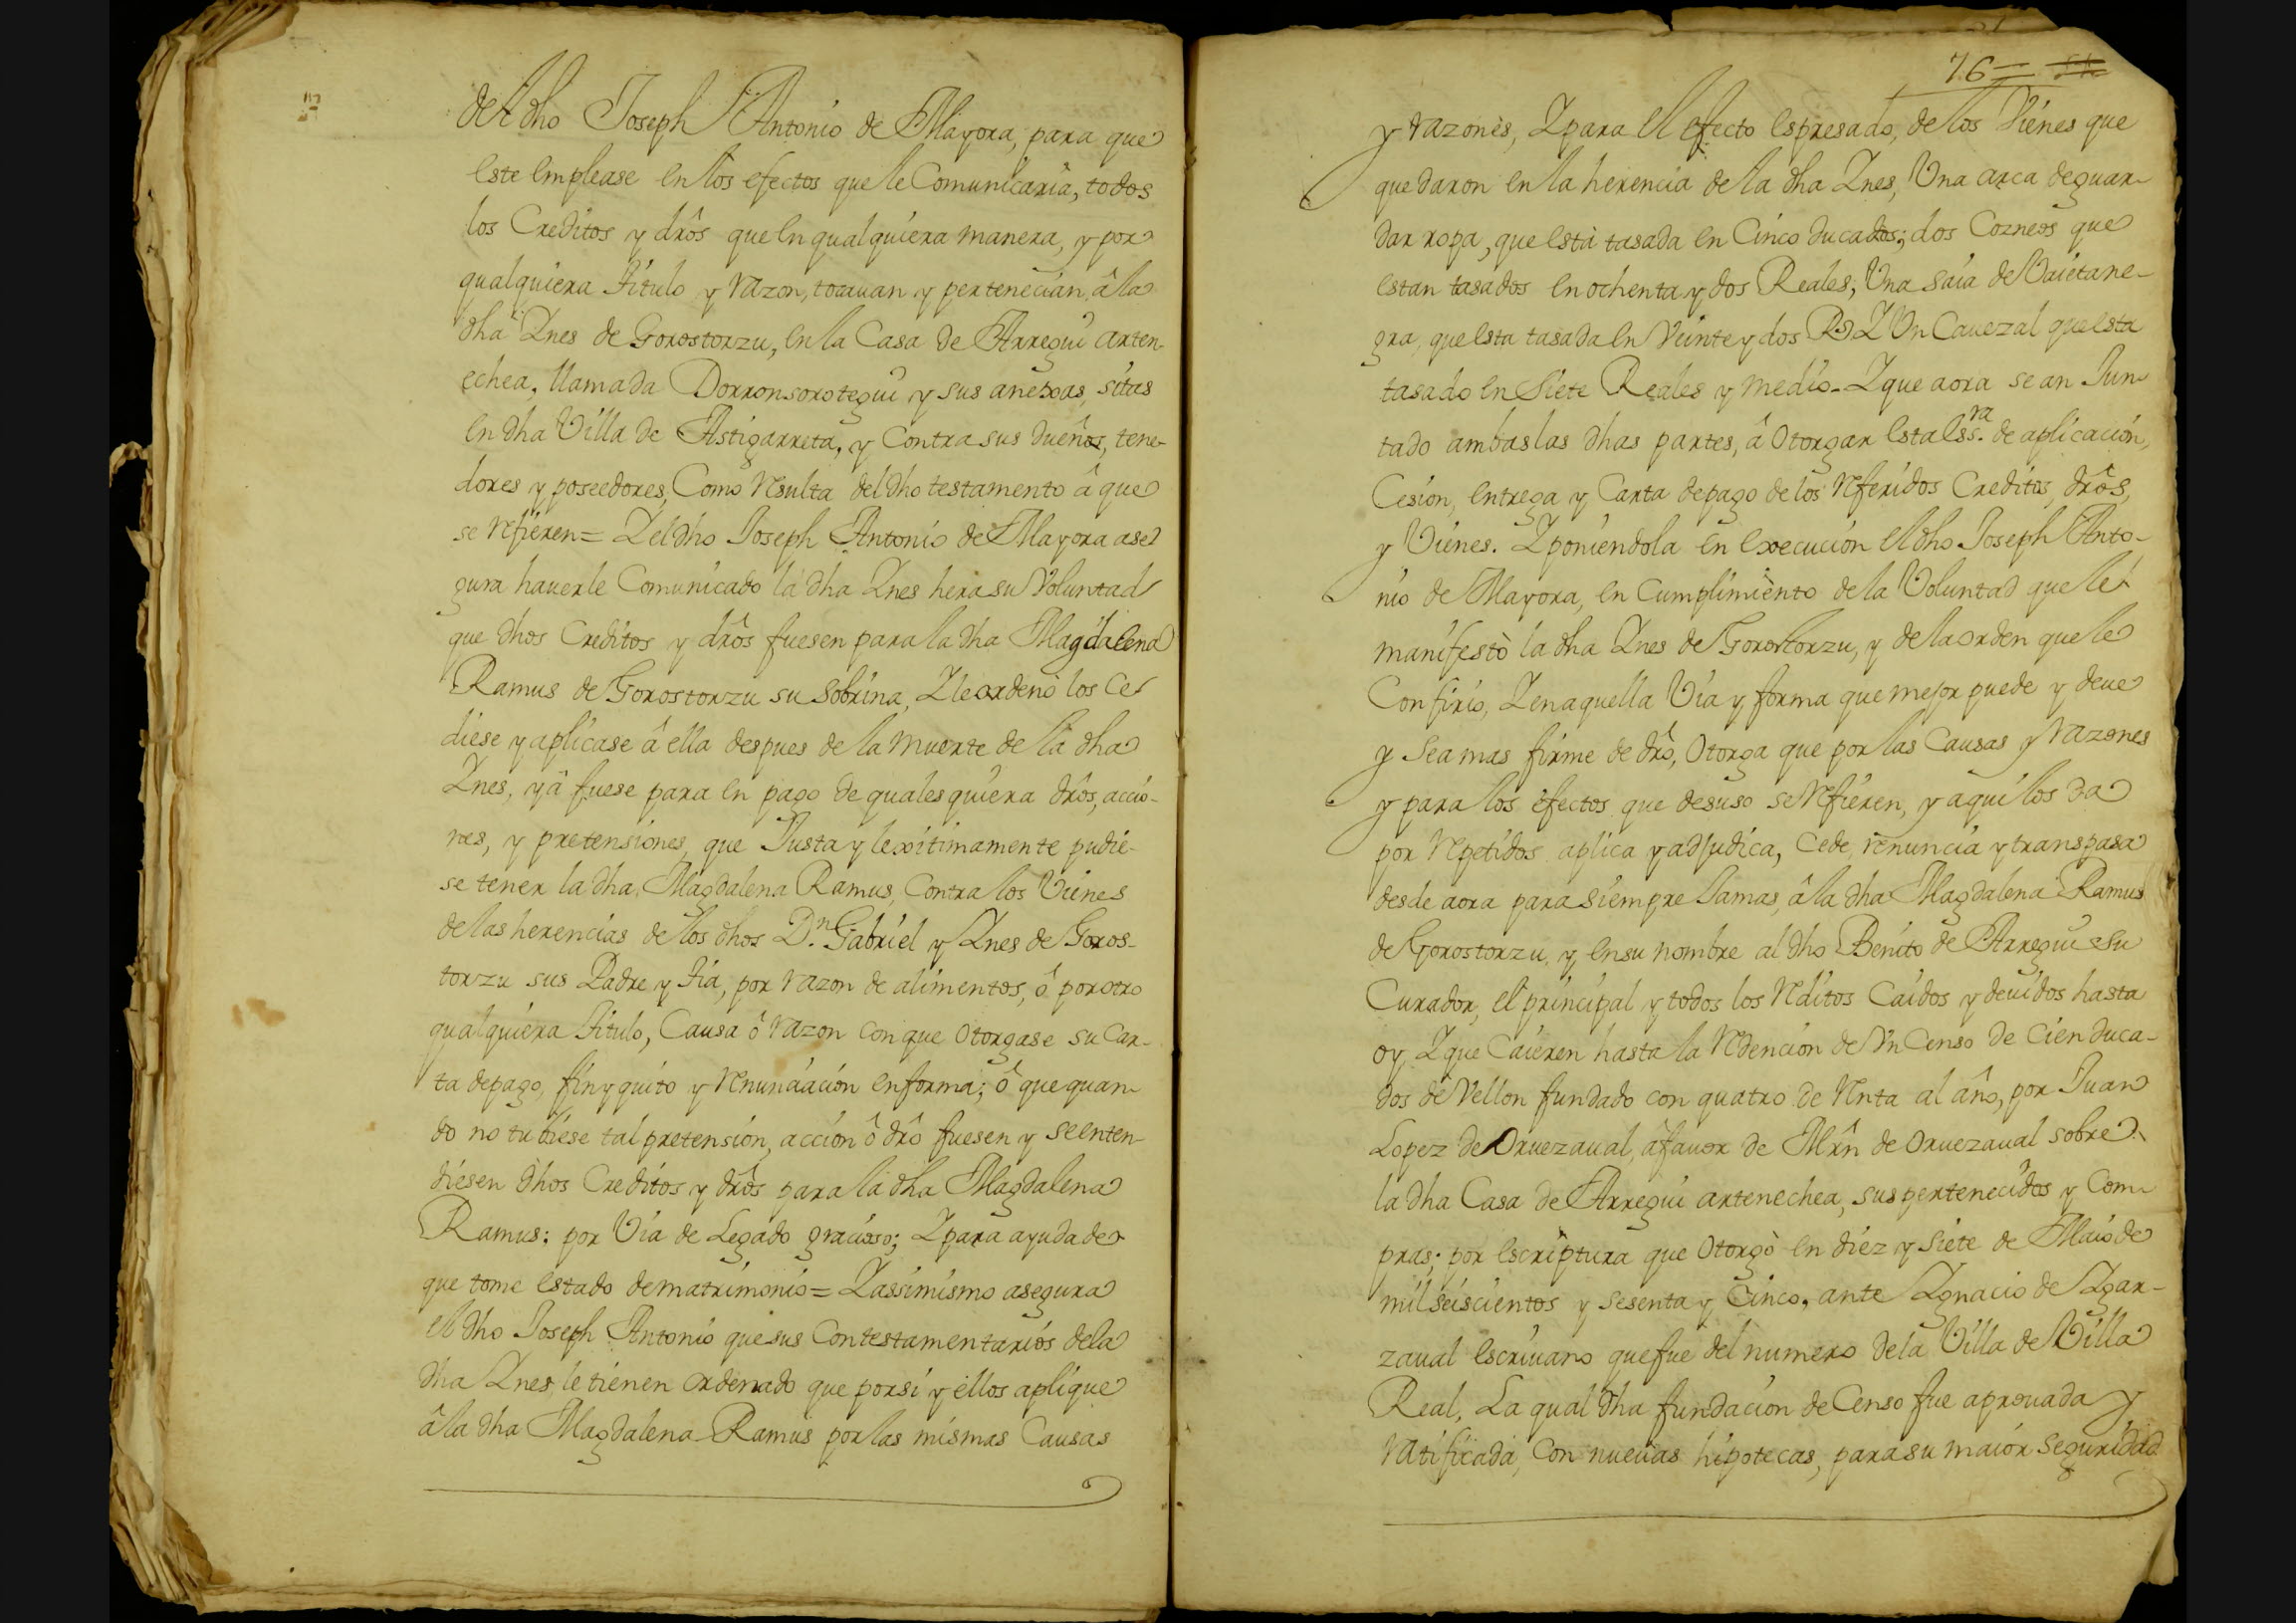 del dho Joseph Antonio de Mayora, para que
este emplease en los efectos que le Comunicaria, todos
los Creditos y drôs que en qualquiera manera, y por
qualquiera titulo y razon, tocauan y pertenecian, â la
dha Ynes de Gorostorzu, en la Casa de Arregui arten-
echea, llamada Dorronsorotegui y sus anexas, sitas
en dha Villa de Astigarreta, y Contra sus dueños, tene-
dores y poseedores, Como resulta del dho testamento â que
se refieren = Y el dho Joseph Antonio de Mayora ase
gura hauerle Comunicado la dha Ynes hera su Voluntad
que dhos Creditos y drôs fuesen para la dha Magdalena
Ramus de Gorostorzu su Sobrina, Y le ordenò los Ce
diese y aplicase â ella despues de la muerte de la dha
Ynes, yâ fuese para en pago de qualesquiera drôs, accio-
nes, y pretensiones, que Justa y lexitimamente pudie-
se tener la dha Magdalena Ramus, Contra los Vienes
de las herencias de los dhos D.n Gabriel y Ynes de Goros-
torzu sus Padre y tia, por razon de alimentos, ô por otro
qualquiera titulo, Causa ô razon con que Otorgase su Car-
ta de pago, finyquito y renunciacion en forma; ô que quan-
do no tubiese tal pretension, acción ô drô fuesen y se enten-
diesen dhos Creditos y drôs para la dha Magdalena
Ramus: por Via de Legado gracioso; Y para ayuda de
que tome estado de matrimonio = Y assimismo asegura
el dho Joseph Antonio que sus Contestamentarios de la
dha Ynes, le tienen ordenado que por si y ellos aplique
â la dha Magdalena Ramus por las mismas Causas
76
y razones, Y para el efecto espresado, de los Vienes que
quedaron en la herencia de la dha Ynes, Una arca de guar-
dar ropa, que està tasada en Cinco ducados; dos Cozneos que
estan tasados en ochenta y dos Reales; Una saia de Vaieta ne-
gra, que esta tasada en Veinte y dos Rs Y Un Cauezal que esta
tasado en Siete Reales y medio. Y que aora se an Jun
tado ambas las dhas partes, â Otorgar esta ess.ra de aplicación,
Cesion, entrega y Carta de pago de los referidos Creditos, drôs,
y Vienes. Y poniendola en execución el dho Joseph Anto-
nio de Mayora, en Cumplimiento de la Voluntad que le
manifestò la dha Ynes de Gorostorzu, y de la orden que le
Confirió, Y en aquella Via y forma que mejor puede y deue
y Sea mas firme de drô, Otorga que por las Causas y razones
y para los efectos que de suso se refieren, y aqui los da
por repetidos, aplica y adjudica, Cede, renuncia y transpasa
desde aora para siempre Jamas, â la dha Magdalena Ramus
de Gorostorzu, y en su nombre al dho Benito de Arregui su
Curador, el principal y todos los reditos Caidos y deuidos hasta
oy, Y que Caieren hasta la redencion de Vn Censo de Cien duca-
dos de Vellon fundado con quatro de renta al año, por Juan
Lopez de Oruezaual, â fauor de Mrñ de Oruezaual sobre
la dha Casa de Arregui artenechea, sus pertenecidos y Com-
pras; por escriptura que Otorgò en diez y Siete de Maio de
mil seiscientos y sesenta y Cinco, ante Ygnacio de Ygar-
zaual escriuano que fue del numero de la Villa de Villa
Real, La qual dha fundación de Censo fue aprouada y
ratificada, Con nueuas hipotecas, para su maior seguridad